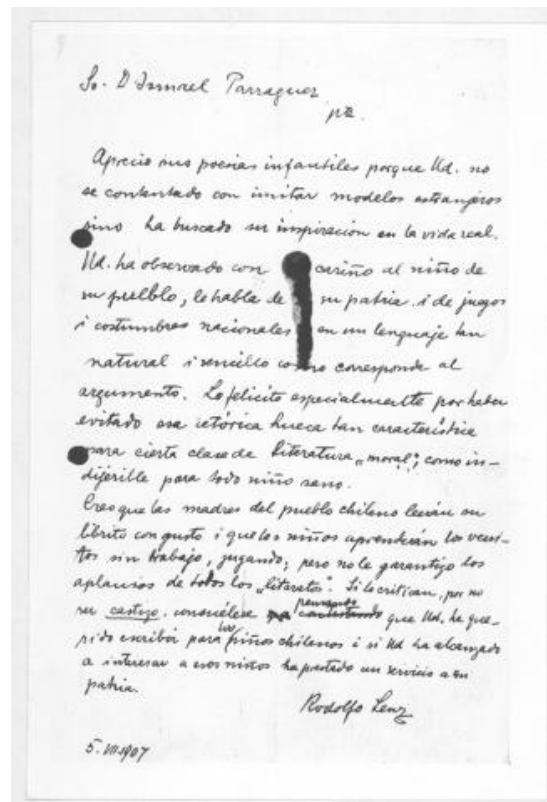 Sr. D Ismael Parraguez
pte.
Aprecio sus poesias infantiles porque Ud. no
se contentado con imitar modelos estranjeros
sino ha buscado su inspiracion en la vida real.
Ud. ha observado con cariño al niño de
su pueblo, le habla de su patria i de juegos
i costumbres nacionales en un lenguaje tan
natural i sencillo como corresponde al
argumento. Lo felicito especialmente por haber
evitado esa retórica hueca tan característica
para cierta clase de literatura „moral“, como in-
dijerible para todo niño sano.
Creo que las madres del pueblo chileno leerán su
librito con gusto i que los niños aprenderán los versi-
tos sin trabajo, jugando; pero no le garantizo los
aplausos de todos los „literatos“. Si lo critican, por no
ser castizo, consuélese pensando que Ud. ha que-
rido escribir para los niños chilenos i si Ud ha alcanzado
a interesar a esos niños ha prestado un servicio a su
patria.
Rodolfo Lenz
5. VII.1907